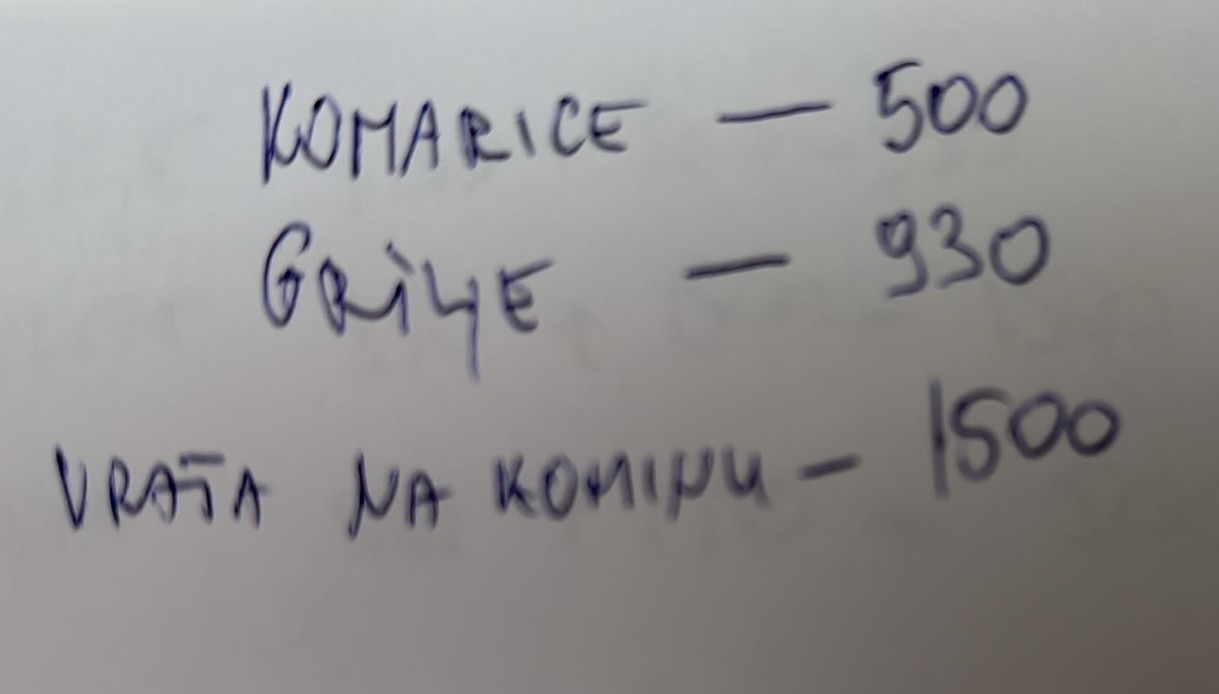 KOMARICE — 500
GRILJE — 930
VRATA NA KOMINU — 1500